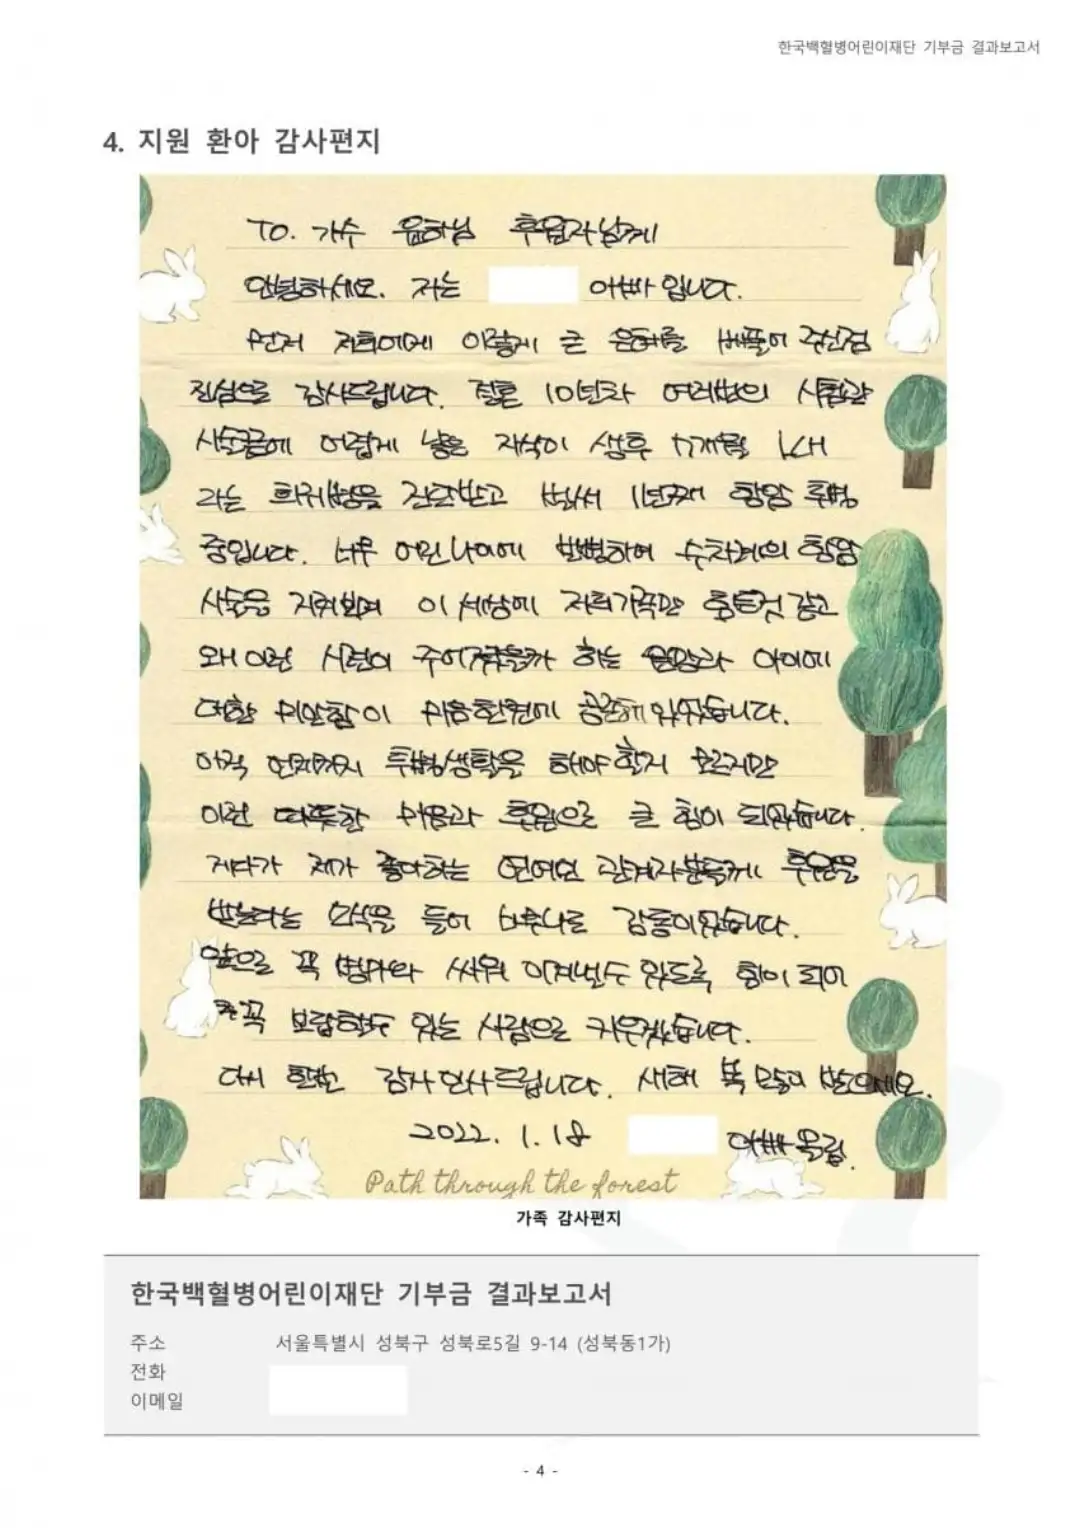 한국백혈병어린이재단 기부금 결과보고서
4. 지원 환아 감사편지
TO. 가수 윤하님 후원자님께
안녕하세요. 저는 아빠 입니다.
먼저 저희에게 이렇게 큰 은혜를 베풀어 주신점
진심으로 감사드립니다. 결혼 10년차 여러번의 시험관
시술끝에 어렵게 낳은 자식이 생후 17개월 LCH
라는 희귀병을 진단받고 벌써 11번째 항암 투병
중입니다. 너무 어린나이에 발병하여 수차례의 항암
시술을 지켜보며 이 세상에 저희가족만 힘든것 같고
왜 이런 시련이 주어졌을까 하는 원망과 아이에
대한 미안함이 마음한켠에 공존해 있었습니다.
아직 언제까지 투병생활을 해야 할지 모르지만
이런 따뜻한 마음과 후원으로 큰 힘이 되었습니다.
게다가 제가 좋아하는 연예인 관계자분들께 후원을
받는다는 소식을 들어 너무나도 감동이었습니다.
앞으로 꼭 병마와 싸워 이겨낼수 있도록 힘이 되어
꼭 보답할수 있는 사람으로 키우겠습니다.
다시 한번 감사 인사드립니다. 새해 복 많이 받으세요.
2022. 1. 18 아빠 올림.
Path through the forest
가족 감사편지
한국백혈병어린이재단 기부금 결과보고서
주소 서울특별시 성북구 성북로5길 9-14 (성북동1가)
전화
이메일
- 4 -